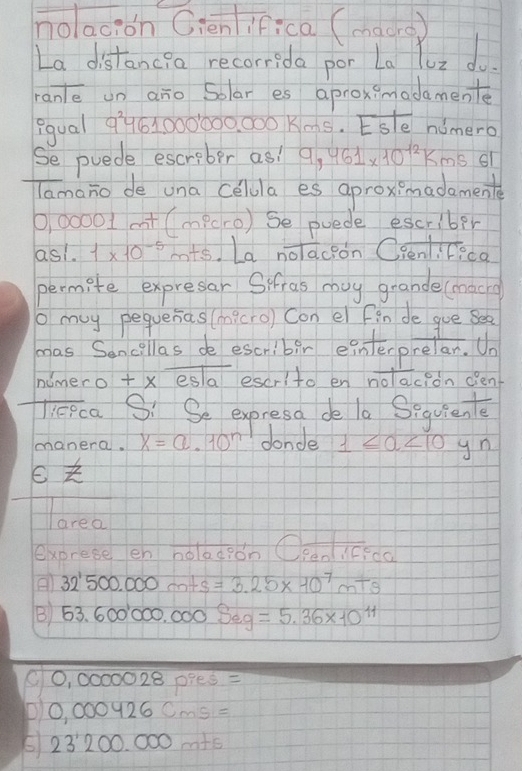 notación Cientifica (macro)
La distancia recorrida por La luz du-
rante un año Solar es aproximadamente
igual 9²461.000'000.000 Kms. Este número
Se puede escribir así 9,461x10¹² Kms el
Tamaño de una célula es aproximadamente
0,00001 mt (micro) Se puede escribir
así. 1x10⁻⁵ mts. La notación Cientifica
permite expresar Sifras muy grande (macro)
o muy pequeñas (micro) Con el fin de que Sea
mas Sencillas de escribir e interpretar. Un
número + x esta escrito en notación cien-
Tifica Si Se expresa de la Siguiente
manera. x = a. 10ⁿ donde 1 ≤ a < 10 y n
∈ Z
Tarea
Exprese en notación Cientifica
A) 32'500.000 mts = 3.25 x 10⁷ mTs
B) 53.600'000.000 Seg = 5.36x10¹¹
C) 0,0000028 pies =
D) 0,000426 Cms =
S) 23'200.000 mts